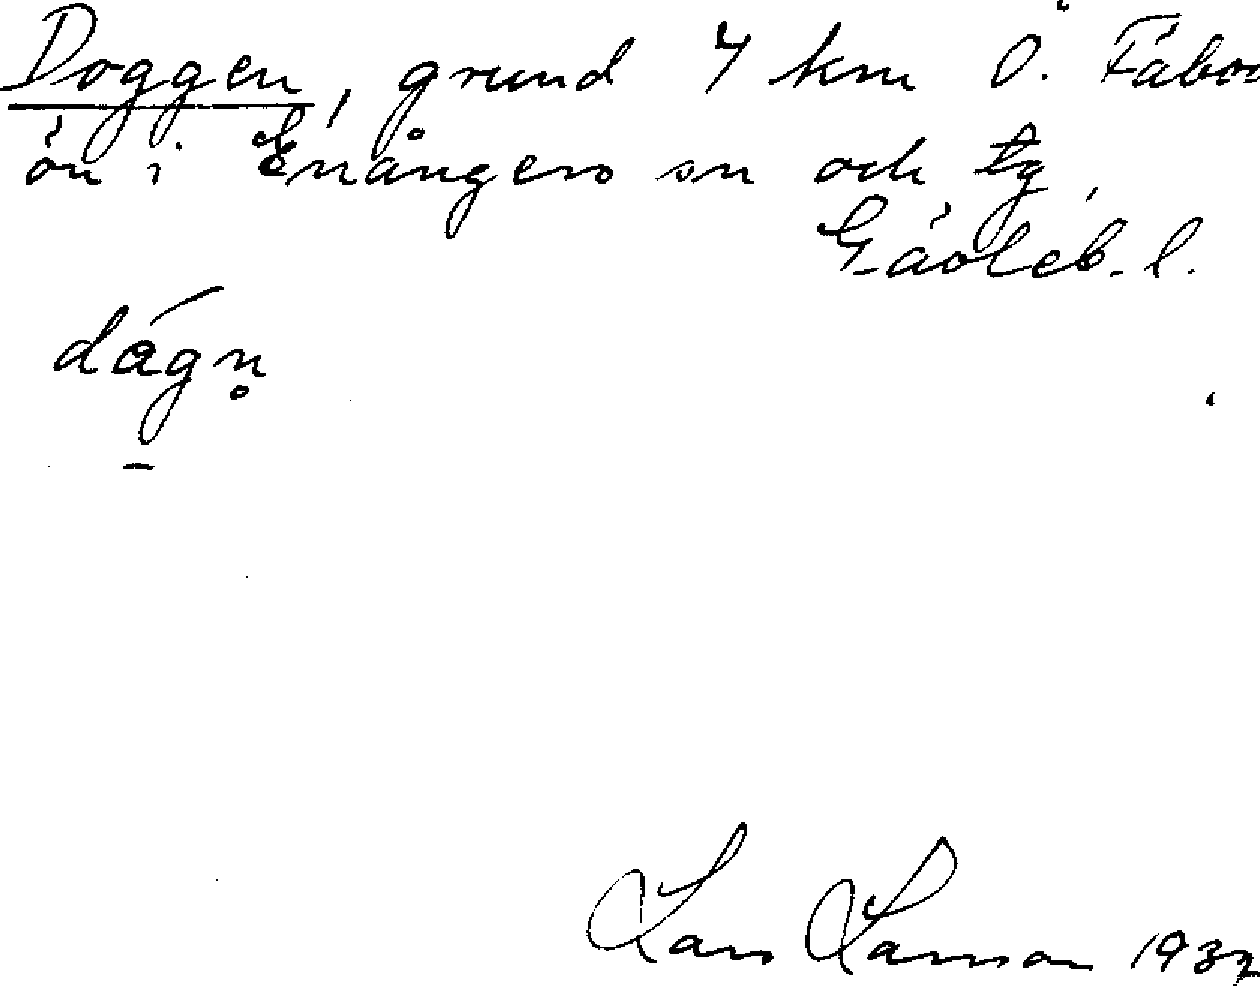 Doggen, grund 4 km Ö. Fåbod
ön i Enångers sn och tg,
Gävleb. l.
dágn̥
Lars Larsson 1932